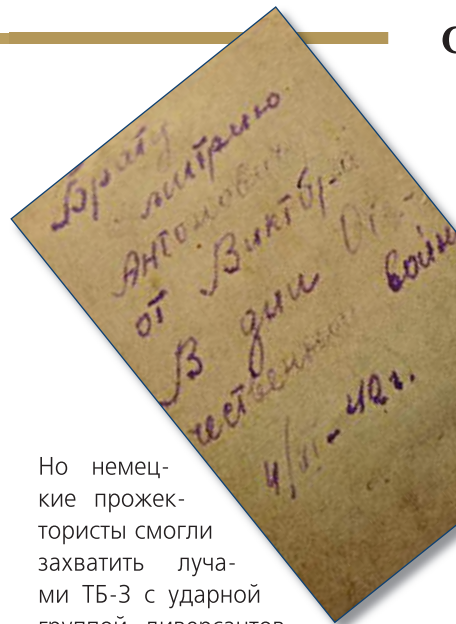 Брату
митрию
Антонович
от Виктора
В дни Оте-
чественной войны
4/VI - 42 г.
Но немец-
кие прожек-
тористы смогли
захватить луча-
ми ТБ-3 с ударной
группой диверсантов